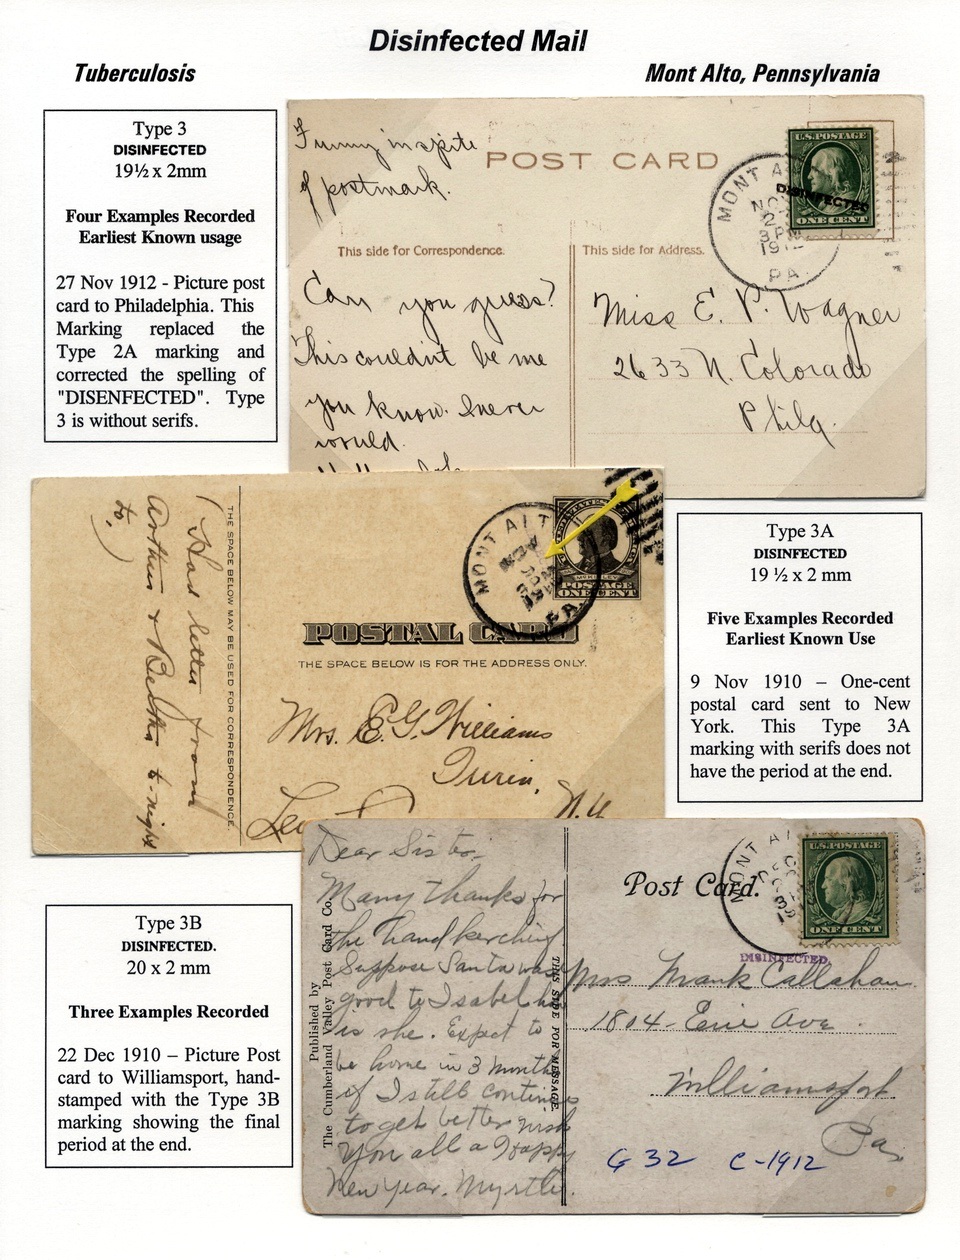 Disinfected Mail
Tuberculosis
Mont Alto, Pennsylvania
Type 3
DISINFECTED
19½ x 2mm
Four Examples Recorded
Earliest Known usage
27 Nov 1912 - Picture post
card to Philadelphia. This
Marking replaced the
Type 2A marking and
corrected the spelling of
"DISENFECTED". Type
3 is without serifs.
Funny in spite
of postmark.
POST CARD
U.S. POSTAGE
ONE CENT
MONT A
DISINFECTED
NO
2
3 PM
191
PA.
This side for Correspondence.
This side for Address.
Can you guess?
This couldn't be me
you know. I never
would.
Miss E. P. Wagner
2633 N. Colorado
Phila.
Type 3A
DISINFECTED
19 ½ x 2 mm
Five Examples Recorded
Earliest Known Use
9 Nov 1910 – One-cent
postal card sent to New
York. This Type 3A
marking with serifs does not
have the period at the end.
(Had letter from
Arthur & Bertha to-night
to.)
THE SPACE BELOW MAY BE USED FOR CORRESPONDENCE.
MONT ALT
NOV
PA.
MCKINLEY
POSTAGE
ONE CENT
POSTAL CARD
THE SPACE BELOW IS FOR THE ADDRESS ONLY.
Mrs. E. G. Williams
Turin,
N.Y.
Type 3B
DISINFECTED.
20 x 2 mm
Three Examples Recorded
22 Dec 1910 – Picture Post
card to Williamsport, hand-
stamped with the Type 3B
marking showing the final
period at the end.
Dear Sister,
Many thanks for
the handkerchief
Suppose Santa was
good to Isabel how
is she. Expect to
be home in 3 months
if I still continue
to get better wish
You all a Happy
New Year. Myrtle.
Published by
The Cumberland Valley Post Card Co.
THIS SIDE FOR MESSAGE.
Post Card.
MONT AL
U.S. POSTAGE
ONE CENT
DISINFECTED.
Mrs Frank Callahan
1804 Erie Ave.
Williamsport
Pa.
G 32 C-1912